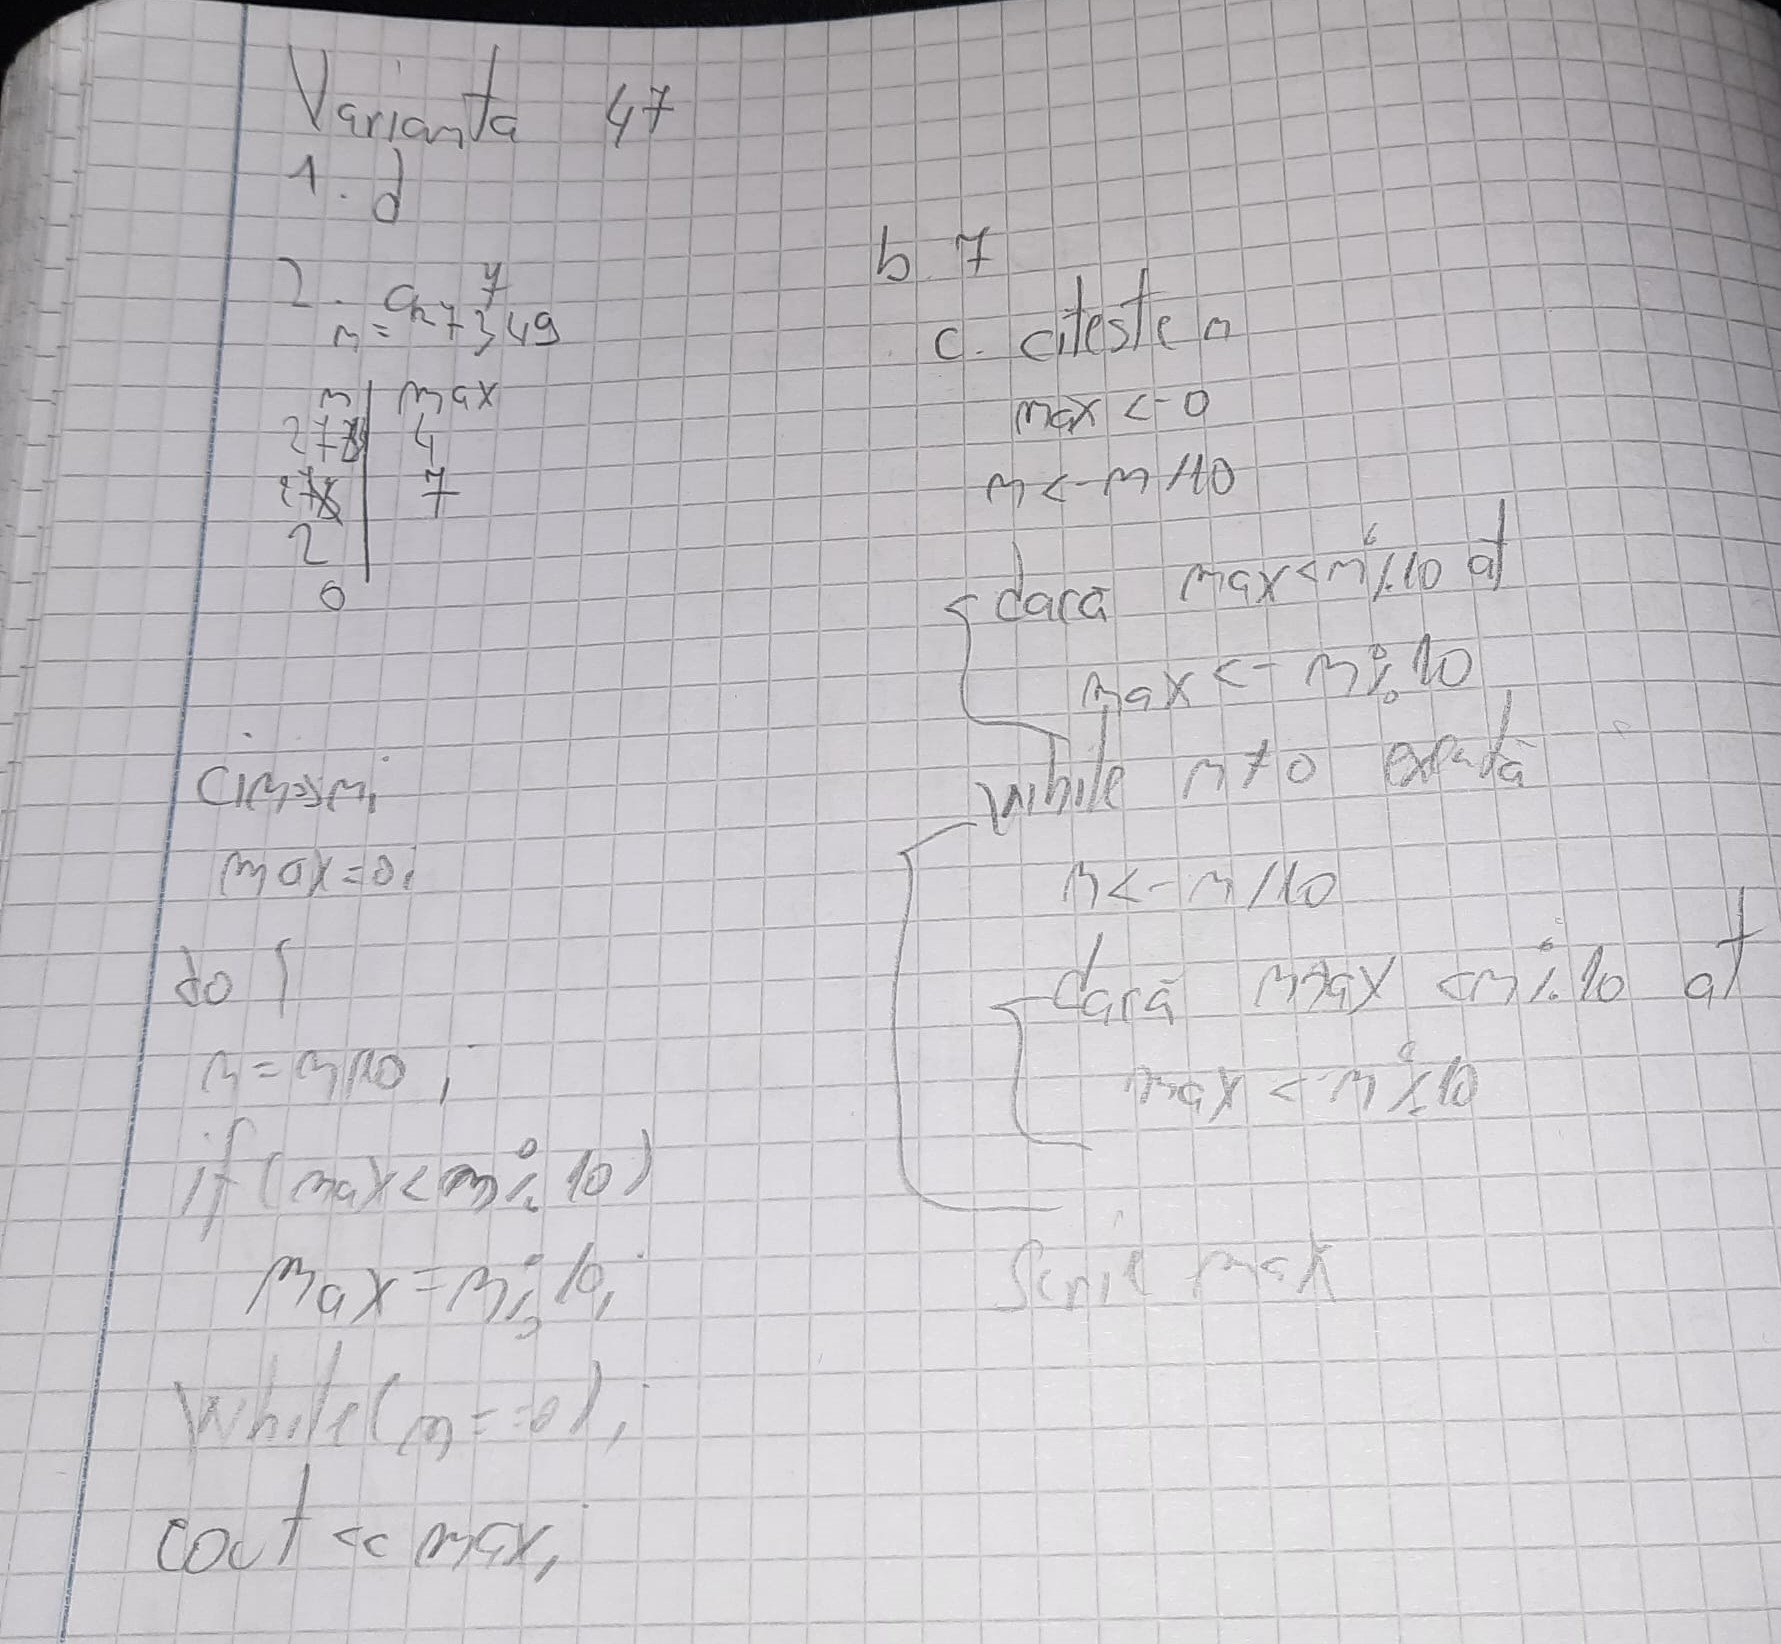 Varianta 47
1. d
2. a. 7
n = 27349
n | max
4
7
2
0
cin>>n;
max=0;
do {
n=n/10;
if(max<n%10)
max=n%10;
while(n==0);
cout<<max;
b 7
c. citeste n
max <- 0
n <- n/10
dacă max<n%10 at
max <- n%10
while n≠0 execută
n <- n/10
dacă max <n%10 at
max <- n%10
Scrie max